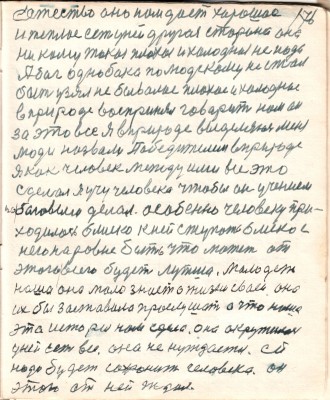 она нам дает хорошее
и теплое другая сторона она
никому такая плохая и холодная не надо
Я был одно по людскому не стал
быть небывалое плохое и холодное
в природе воспринял говорит нам он
за это все Я в природе меня
люди назвали Победителем природы
я как человек между ими все это
сделал я учу человека чтобы он учением
делал. особенно человеку при-
ходилось близко к ней ступать близко с
него наровне быть, что может от
этого всего будет лучше. Молодежь
наша она мало знает о жизни своей она
их бы заставила прослушать а что наша
эта история нам она
у ней есть все, она не нуждается. Ей
надо будет сохранить человека. он
этого от ней ждал